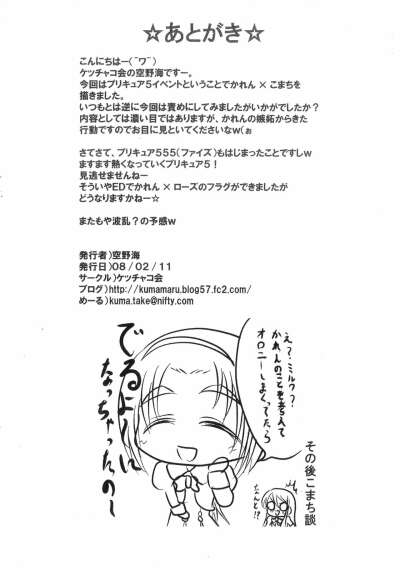 ☆あとがき☆
こんにちはー(´ワ`)
ケッチャコ会の空野海ですー。
今回はプリキュア5イベントということでかれん × こまちを
描きました。
いつもとは逆に今回は責めにしてみましたがいかがでしたか？
内容としては濃い目ではありますが、かれんの嫉妬からきた
行動ですのでお目に見といてくださいなw(ぉ
さてさて、プリキュア555(ファイズ)もはじまったことですしw
ますます熱くなっていくプリキュア5！
見逃せませんねー
そういやEDでかれん × ローズのフラグができましたが
どうなりますかねー☆
またもや波乱？の予感w
発行者)空野海
発行日)08/02/11
サークル)ケッチャコ会
ブログ)http://kumamaru.blog57.fc2.com/
めーる)kuma.take@nifty.com
え？ミルク？
かれんのことを考えて
オロニーしまくってたら
でるよーに
なっちゃったのー
その後こまち談
なんと!?